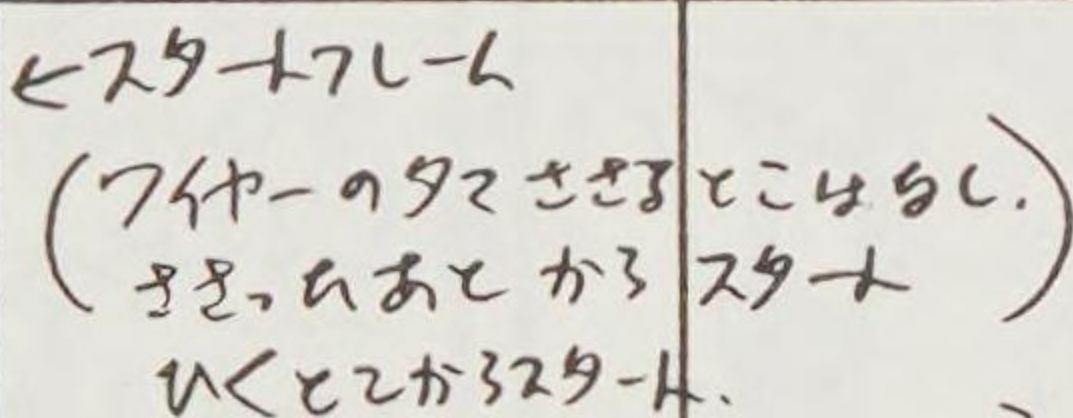 ←スタートフレーム
(ワイヤーのタマささるとこはなし.)
ささったあとからスタート
ひくとこからスタート.